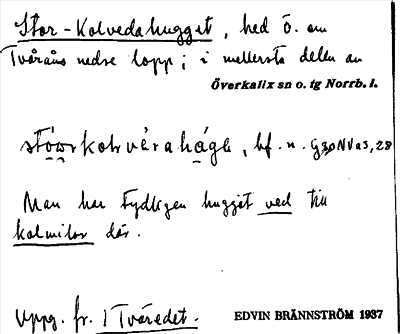 Stor-Kolvedahugget, hed ö. om
Tvåråns nedre lopp; i mellersta delen av
Överkalix sn o. tg Norrb. l.
bf. n.
Man har tydligen huggit ved till
kolmilor där.
Uppg. fr. 1 Tväredet.
EDVIN BRÄNNSTRÖM 1937